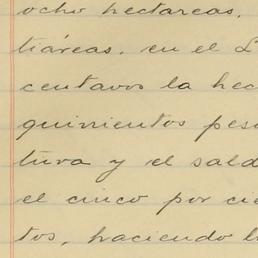 ocho hectareas,
tiáreas, en el L
centavos la hec
quinientos pes
tura y el sald
el cinco por cie
tos, haciendo l